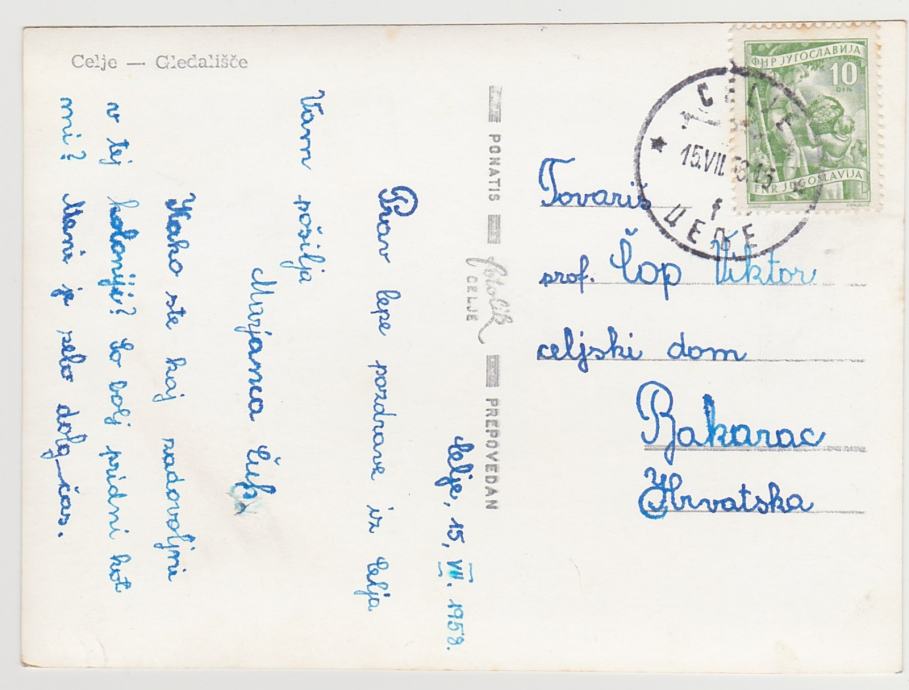 Celje — Gledališče
Celje, 15. VII. 1958.
Prav lepe pozdrave iz Celja
Vam pošilja
Marjanca
Kako ste kaj zadovoljni
v tej koloniji? So bolj pridni kot
mi? Meni je zelo dolg čas.
PONATIS fotolik CELJE PREPOVEDAN
ФНР ЈУГОСЛАВИЈА
10
DIN
FNR JUGOSLAVIJA
CELJE
15.VII.58
ЦЕЉЕ
Tovariš
prof. Čop Viktor
celjski dom
Bakarac
Hrvatska